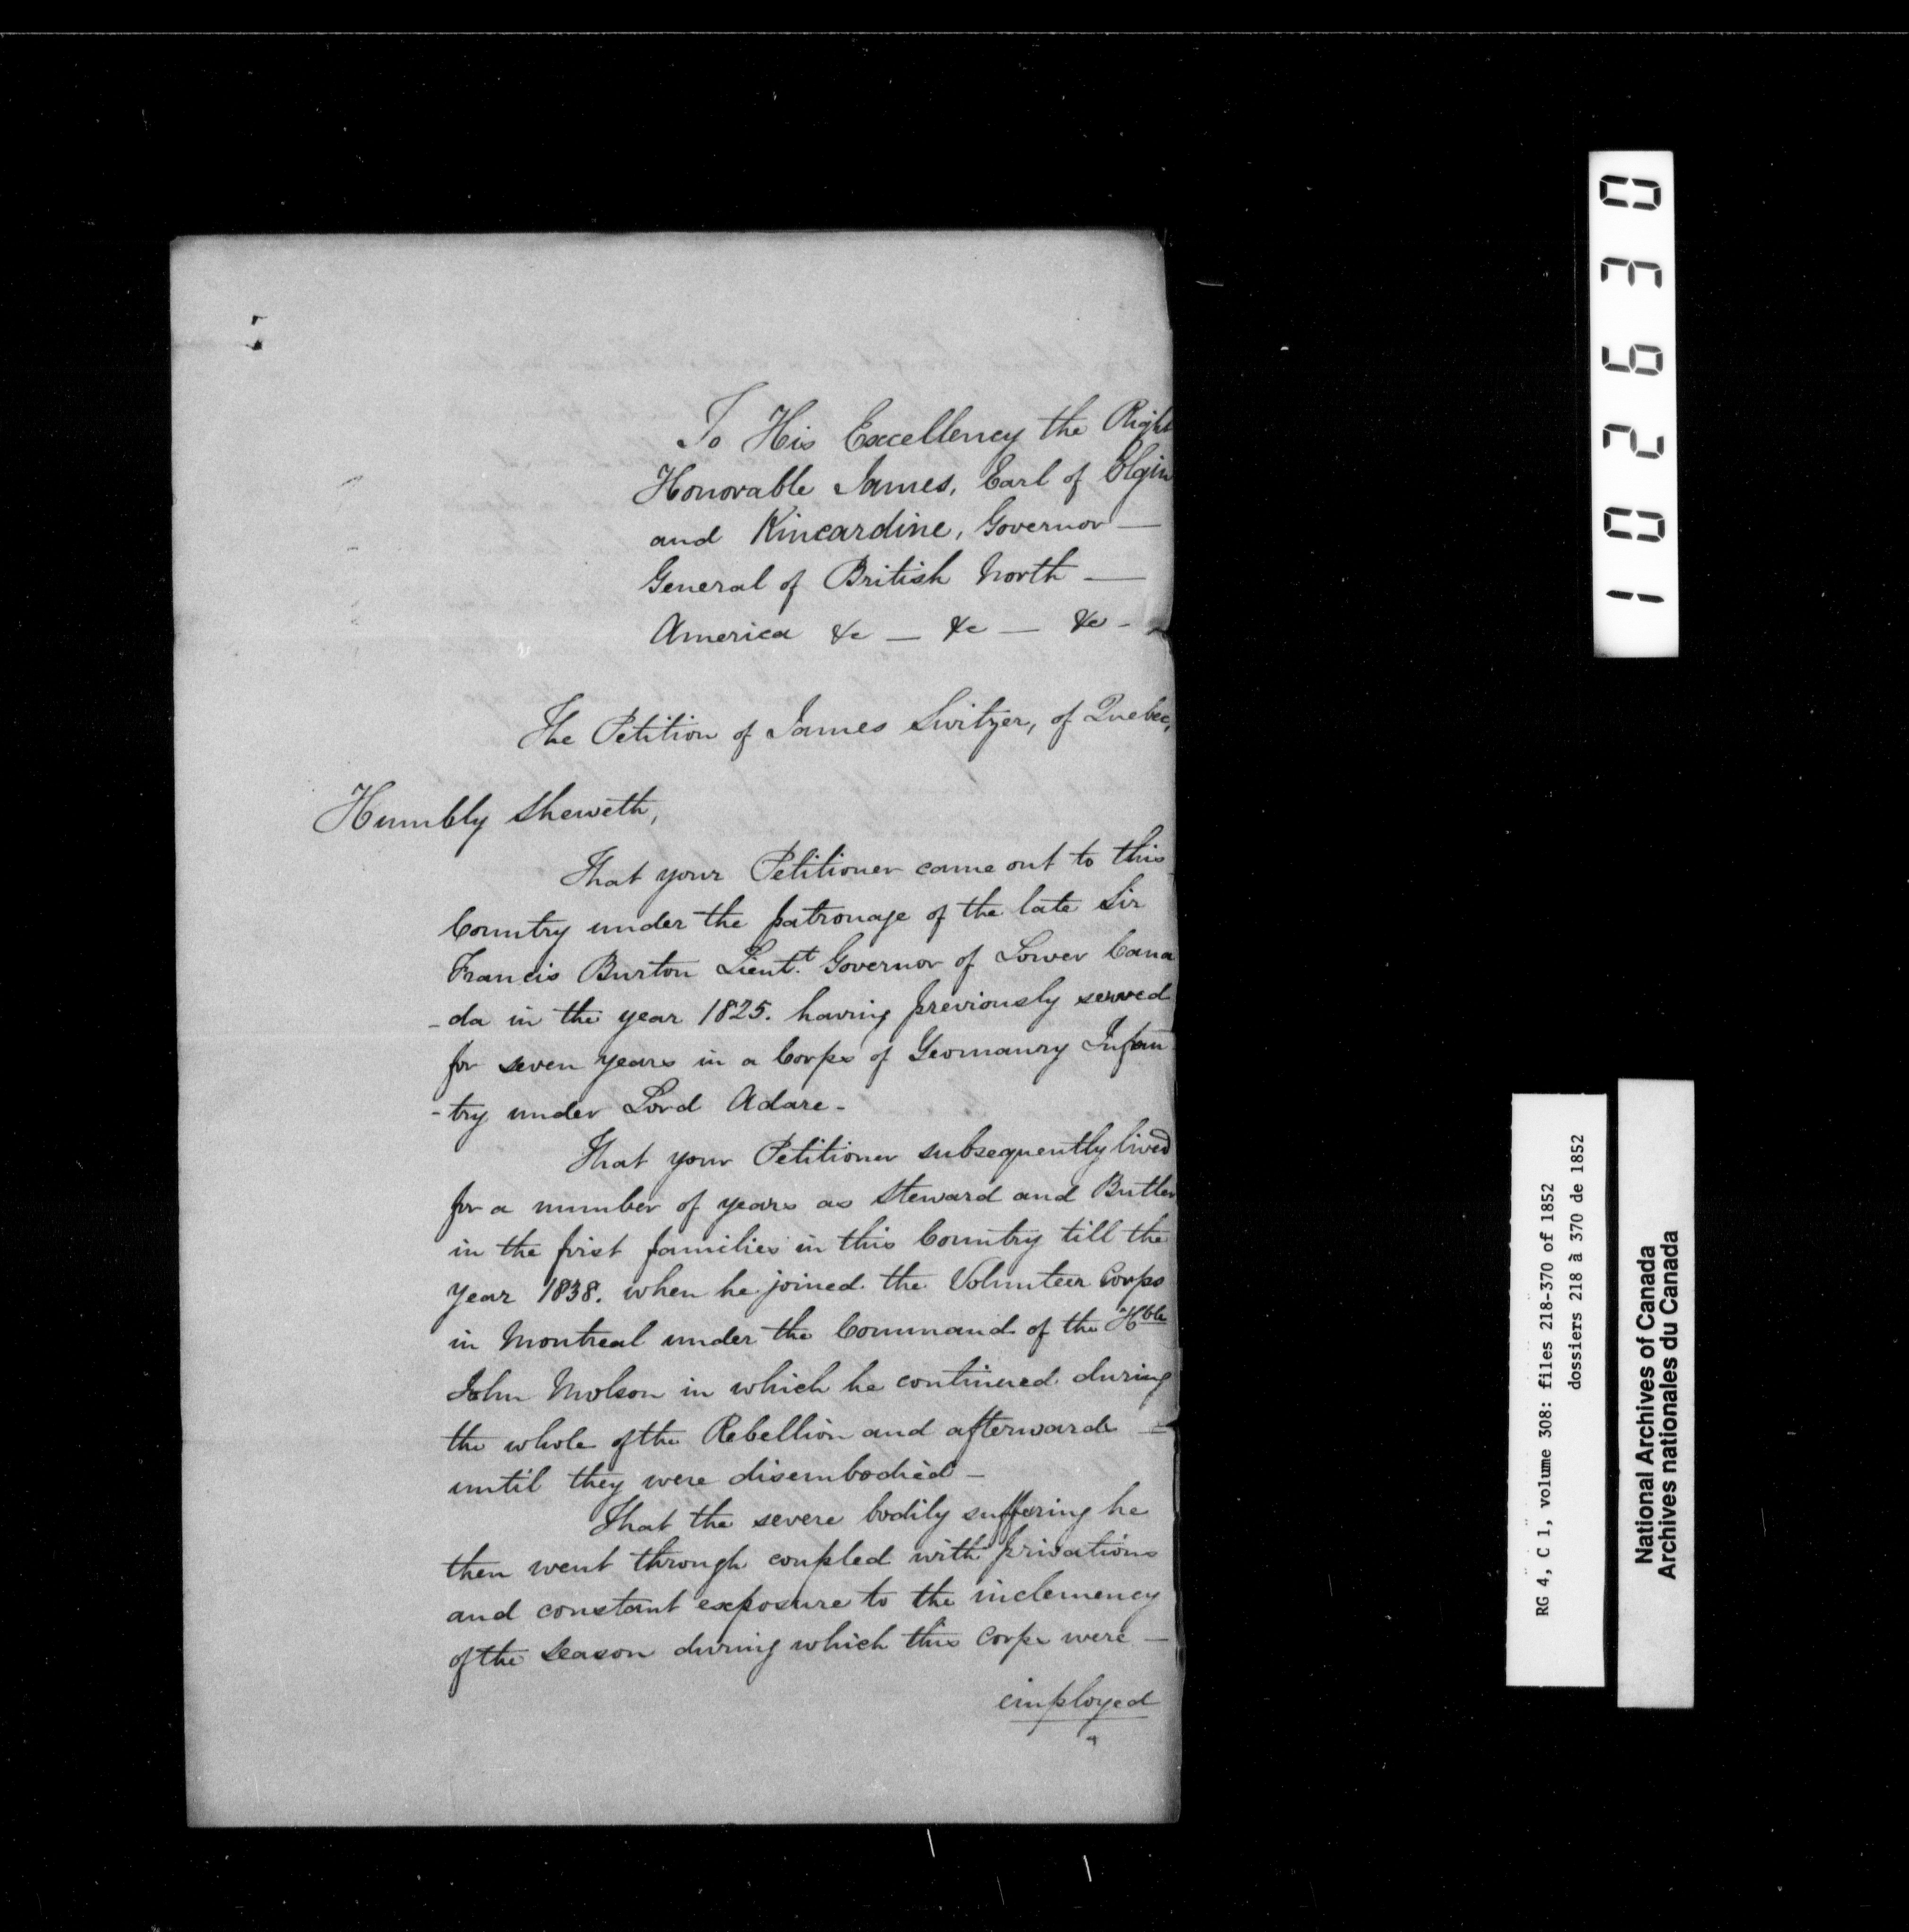 To His Excellency the Right
Honorable James, Earl of Elgin
and Kincardine, Governor —
General of British North —
America &c — &c — &c -
The Petition of James Switzer, of Quebec,
Humbly Sheweth,
That your Petitioner came out to this
Country under the patronage of the late Sir
Francis Burton Lieut.t Governor of Lower Cana
-da in the year 1825. having previously served
for seven years in a Corps of Yeomanry Infan
-try under Lord Adare -
That your Petitioner subsequently lived
for a number of years as Steward and Butler
in the first families in this Country till the
year 1838. when he joined the Volunteer Corps
in Montreal under the Command of the Hble
John Molson in which he continued during
the whole of the Rebellion and afterwards —
until they were disembodied —
That the severe bodily suffering he
then went through coupled with privations
and constant exposure to the inclemency
of the Season during which this Corps were —
employed
102630
RG 4, C 1, volume 308: files 218-370 of 1852
dossiers 218 à 370 de 1852
National Archives of Canada
Archives nationales du Canada